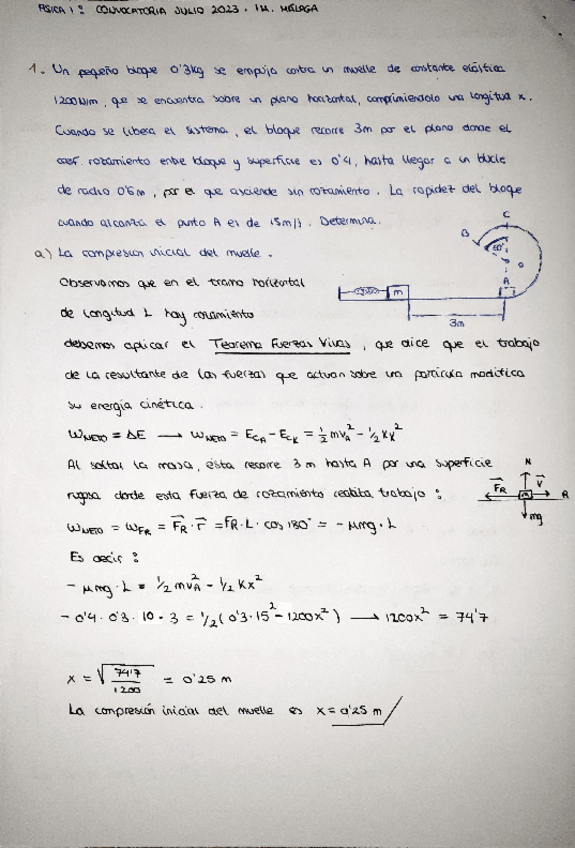 FISICA I : CONVOCATORIA JULIO 2023 . IM. MÁLAGA
1. Un pequeño bloque 0'3kg se empuja contra un muelle de constante elástica
1200N/m, que se encuentra sobre un plano horizontal, comprimiendolo una longitud x.
Cuando se libera el sistema, el bloque recorre 3m por el plano donde el
coef. rozamiento entre bloque y superficie es 0'4, hasta llegar a un bucle
de radio 0'5m, por el que asciende sin rozamiento. La rapidez del bloque
cuando alcanza el punto A es de 15m/s. Determina.
a) La compresion inicial del muelle.
C
B
60°
A
m
3m
Observamos que en el tramo horizontal
de longitud L hay rozamiento
debemos aplicar el Teorema Fuerzas Vivas, que dice que el trabajo
de la resultante de las fuerzas que actuan sobre una particula modifica
su energía cinética.
WNETO = ΔE → WNETO = ECA - ECK = ½mvA² - ½Kx²
Al soltar la masa, esta recorre 3m hasta A por una superficie
rugosa donde esta fuerza de rozamiento realiza trabajo :
N
FR
V
m
mg
WNETO = WFR = FR · r = FR · L · cos 180° = - μmg · L
Es decir :
- μmg · L = ½ mvA² - ½ Kx²
- 0'4 · 0'3 · 10 · 3 = ½ (0'3 · 15² - 1200x²) → 1200x² = 74'7
x = √ 74'7 / 1200 = 0'25 m
La compresión inicial del muelle es x = 0'25 m